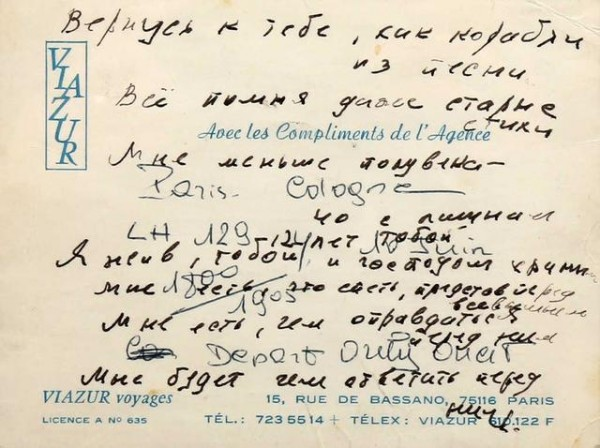 Вернусь к тебе, как корабли
из песни
Всё помня даже старые
стихи
VIAZUR
Avec les Compliments de l'Agence
Мне меньше полувека –
Paris - Cologne
но с лишним
LH 129 12 лет тобой 10 Juin
Я жив, тобой и господом храним
1800
1905
Мне есть, что спеть, представ перед
всевышним
Мне есть, чем оправдаться
перед ним
Depart Orly Ouest
Мне будет чем ответить перед
ним.
VIAZUR voyages
LICENCE A N° 635
15, RUE DE BASSANO, 75116 PARIS
TÉL.: 723 55 14 + TÉLEX: VIAZUR 610.122 F